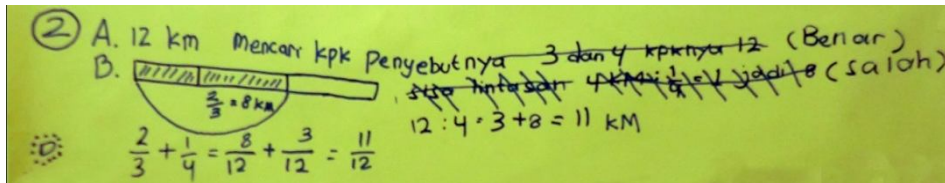 ② A. 12 km mencari kpk penyebutnya 3 dan 4 kpknya 12 (Benar)
B. sisa lintasan 4 KM jadi 8 (salah)
2/3 = 8 km
12 : 4 = 3 + 8 = 11 KM
2/3 + 1/4 = 8/12 + 3/12 = 11/12